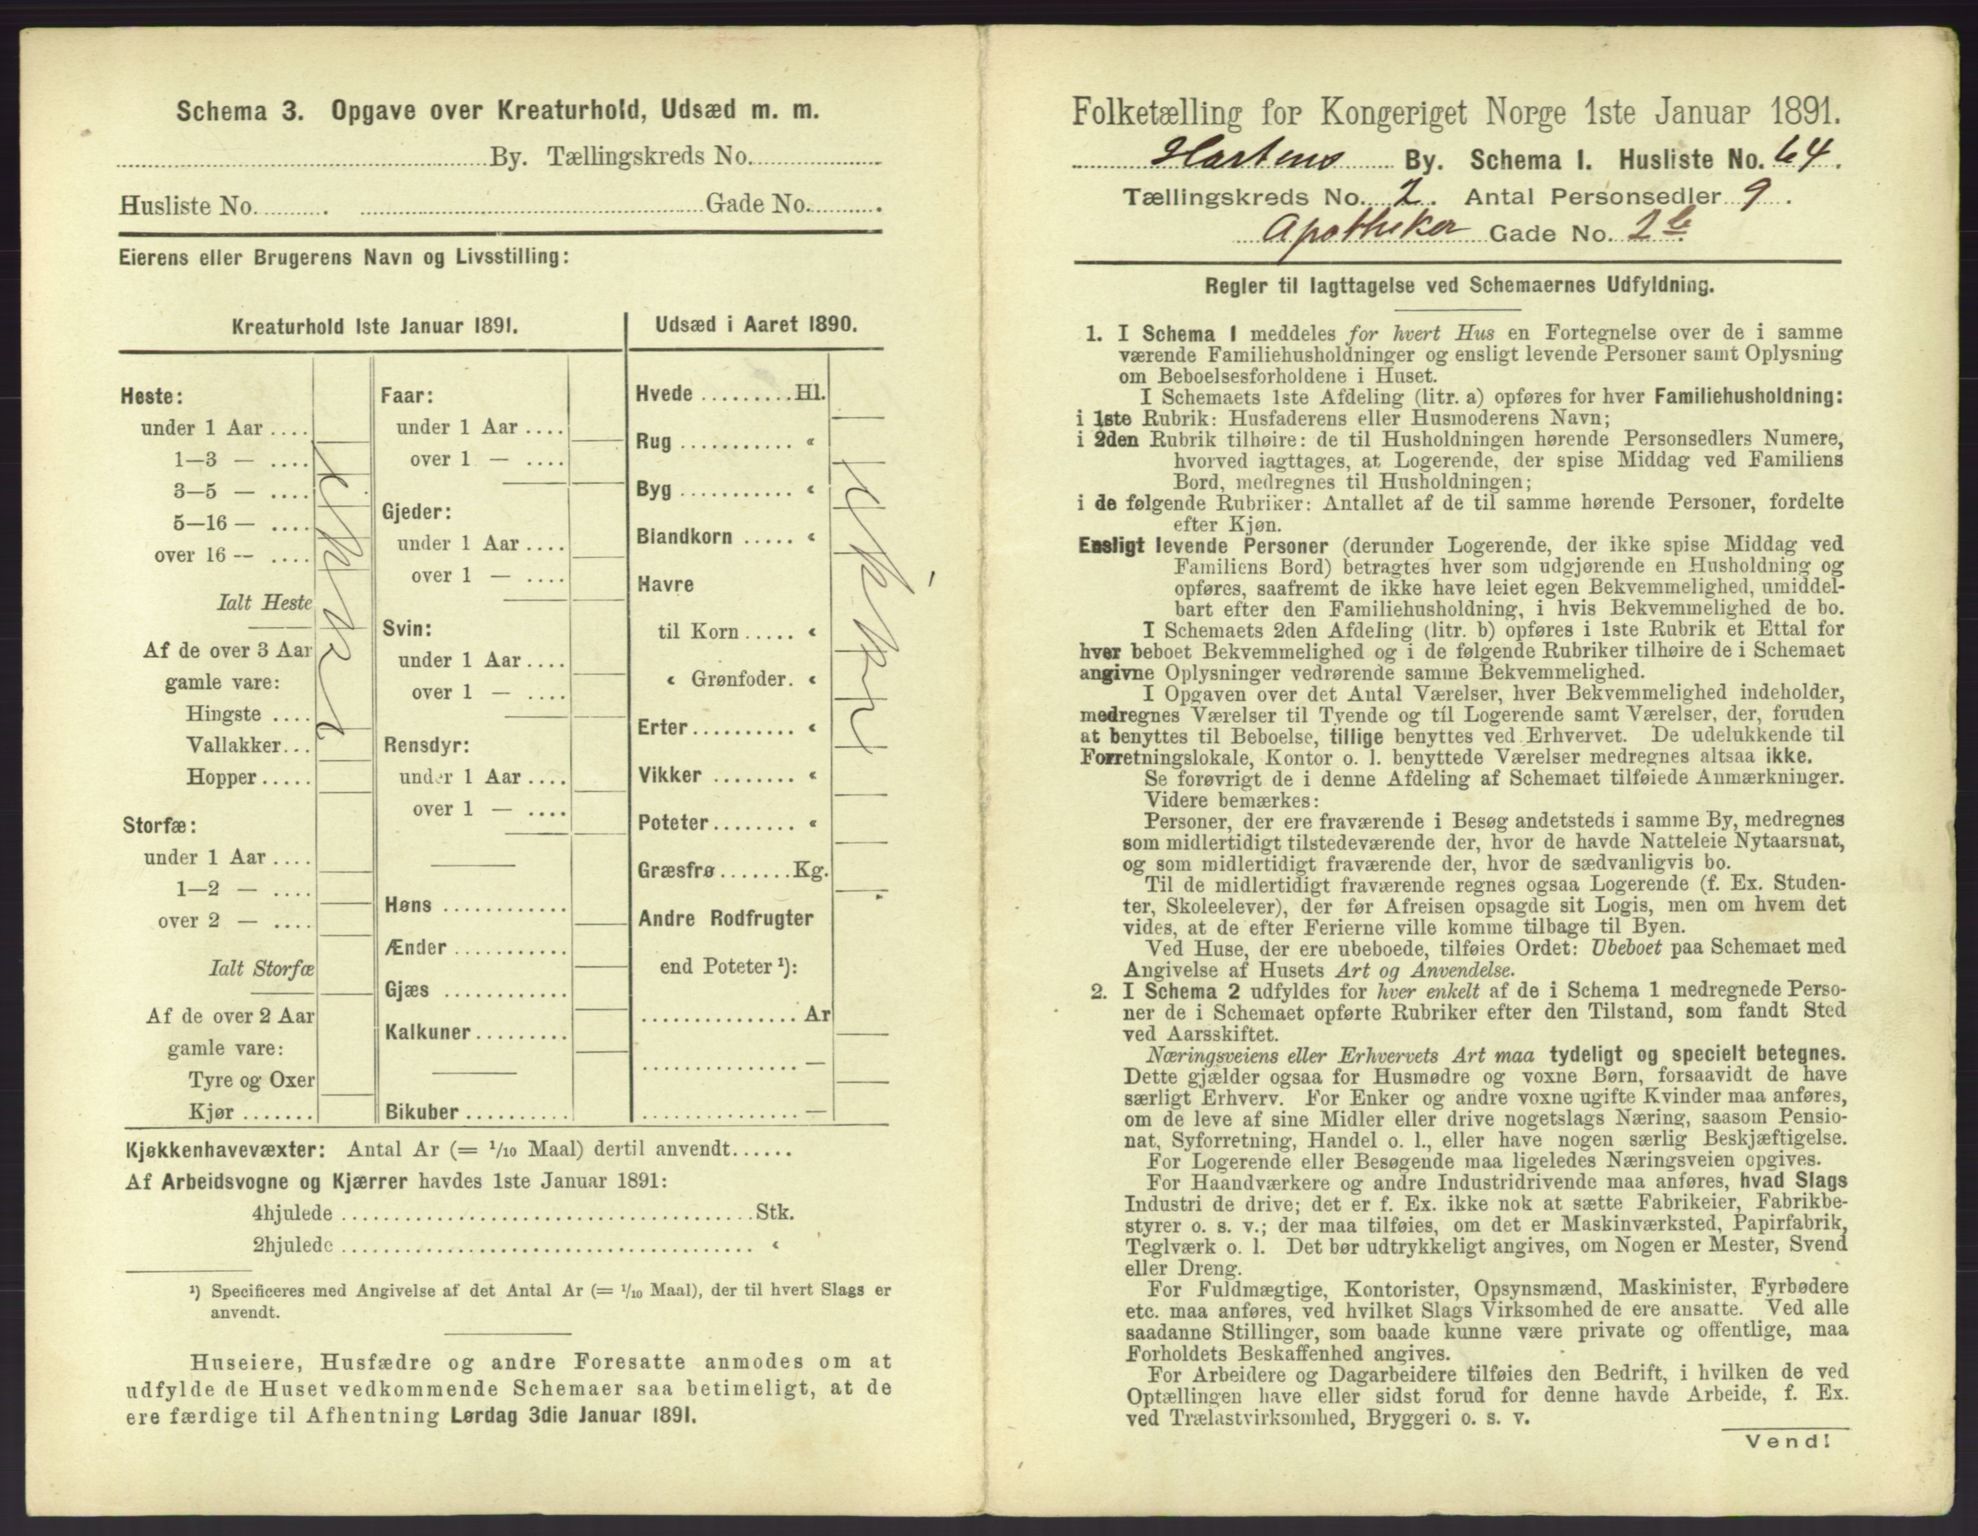 Schema 3. Opgave over Kreaturhold, Udsæd m. m.
By. Tællingskreds No.
Husliste No. Gade No.
Eierens eller Brugerens Navn og Livsstilling:
Kreaturhold 1ste Januar 1891.
Heste:
under 1 Aar
1—3 —
3—5 —
5—16 —
over 16 —
Ialt Heste
Af de over 3 Aar
gamle vare:
Hingste
Vallakker
Hopper
Storfæ:
under 1 Aar
1—2 —
over 2 —
Ialt Storfæ
Af de over 2 Aar
gamle vare:
Tyre og Oxer
Kjør
Faar:
under 1 Aar
over 1 —
Gjeder:
under 1 Aar
over 1 —
Svin:
under 1 Aar
over 1 —
Rensdyr:
under 1 Aar
over 1 —
Høns
Ænder
Gjæs
Kalkuner
Bikuber
Udsæd i Aaret 1890.
Hvede Hl.
Rug «
Byg «
Blandkorn «
Havre
til Korn «
« Grønfoder. «
Erter «
Vikker «
Poteter «
Græsfrø Kg.
Andre Rodfrugter
end Poteter ¹):
Ar
—
—
Kjøkkenhavevæxter: Antal Ar (= 1/10 Maal) dertil anvendt
Af Arbeidsvogne og Kjærrer havdes 1ste Januar 1891:
4hjulede Stk.
2hjulede «
¹) Specificeres med Angivelse af det Antal Ar (= 1/10 Maal), der til hvert Slags er
anvendt.
Huseiere, Husfædre og andre Foresatte anmodes om at
udfylde de Huset vedkommende Schemaer saa betimeligt, at de
ere færdige til Afhentning Lørdag 3die Januar 1891.
Folketælling for Kongeriget Norge 1ste Januar 1891.
Hortens By. Schema 1. Husliste No. 64.
Tællingskreds No. 2. Antal Personsedler 9.
Apotheker Gade No. 2b.
Regler til Iagttagelse ved Schemaernes Udfyldning.
1. I Schema 1 meddeles for hvert Hus en Fortegnelse over de i samme
værende Familiehusholdninger og ensligt levende Personer samt Oplysning
om Beboelsesforholdene i Huset.
I Schemaets 1ste Afdeling (litr. a) opføres for hver Familiehusholdning:
i 1ste Rubrik: Husfaderens eller Husmoderens Navn;
i 2den Rubrik tilhøire: de til Husholdningen hørende Personsedlers Numere,
hvorved iagttages, at Logerende, der spise Middag ved Familiens
Bord, medregnes til Husholdningen;
i de følgende Rubriker: Antallet af de til samme hørende Personer, fordelte
efter Kjøn.
Ensligt levende Personer (derunder Logerende, der ikke spise Middag ved
Familiens Bord) betragtes hver som udgjørende en Husholdning og
opføres, saafremt de ikke have leiet egen Bekvemmelighed, umiddel-
bart efter den Familiehusholdning, i hvis Bekvemmelighed de bo.
I Schemaets 2den Afdeling (litr. b) opføres i 1ste Rubrik et Ettal for
hver beboet Bekvemmelighed og i de følgende Rubriker tilhøire de i Schemaet
angivne Oplysninger vedrørende samme Bekvemmelighed.
I Opgaven over det Antal Værelser, hver Bekvemmelighed indeholder,
medregnes Værelser til Tyende og til Logerende samt Værelser, der, foruden
at benyttes til Beboelse, tillige benyttes ved Erhvervet. De udelukkende til
Forretningslokale, Kontor o. l. benyttede Værelser medregnes altsaa ikke.
Se forøvrigt de i denne Afdeling af Schemaet tilføiede Anmærkninger.
Videre bemærkes:
Personer, der ere fraværende i Besøg andetsteds i samme By, medregnes
som midlertidigt tilstedeværende der, hvor de havde Natteleie Nytaarsnat,
og som midlertidigt fraværende der, hvor de sædvanligvis bo.
Til de midlertidigt fraværende regnes ogsaa Logerende (f. Ex. Studen-
ter, Skoleelever), der før Afreisen opsagde sit Logis, men om hvem det
vides, at de efter Ferierne ville komme tilbage til Byen.
Ved Huse, der ere ubeboede, tilføies Ordet: Ubeboet paa Schemaet med
Angivelse af Husets Art og Anvendelse.
2. I Schema 2 udfyldes for hver enkelt af de i Schema 1 medregnede Perso-
ner de i Schemaet opførte Rubriker efter den Tilstand, som fandt Sted
ved Aarsskiftet.
Næringsveiens eller Erhvervets Art maa tydeligt og specielt betegnes.
Dette gjælder ogsaa for Husmødre og voxne Børn, forsaavidt de have
særligt Erhverv. For Enker og andre voxne ugifte Kvinder maa anføres,
om de leve af sine Midler eller drive nogetslags Næring, saasom Pensio-
nat, Syforretning, Handel o. l., eller have nogen særlig Beskjæftigelse.
For Logerende eller Besøgende maa ligeledes Næringsveien opgives.
For Haandværkere og andre Industridrivende maa anføres, hvad Slags
Industri de drive; det er f. Ex. ikke nok at sætte Fabrikeier, Fabrikbe-
styrer o. s. v.; der maa tilføies, om det er Maskinværksted, Papirfabrik,
Teglværk o. l. Det bør udtrykkeligt angives, om Nogen er Mester, Svend
eller Dreng.
For Fuldmægtige, Kontorister, Opsynsmænd, Maskinister, Fyrbødere
etc. maa anføres, ved hvilket Slags Virksomhed de ere ansatte. Ved alle
saadanne Stillinger, som baade kunne være private og offentlige, maa
Forholdets Beskaffenhed angives.
For Arbeidere og Dagarbeidere tilføies den Bedrift, i hvilken de ved
Optællingen have eller sidst forud for denne havde Arbeide, f. Ex.
ved Trælastvirksomhed, Bryggeri o. s. v.
Vend!